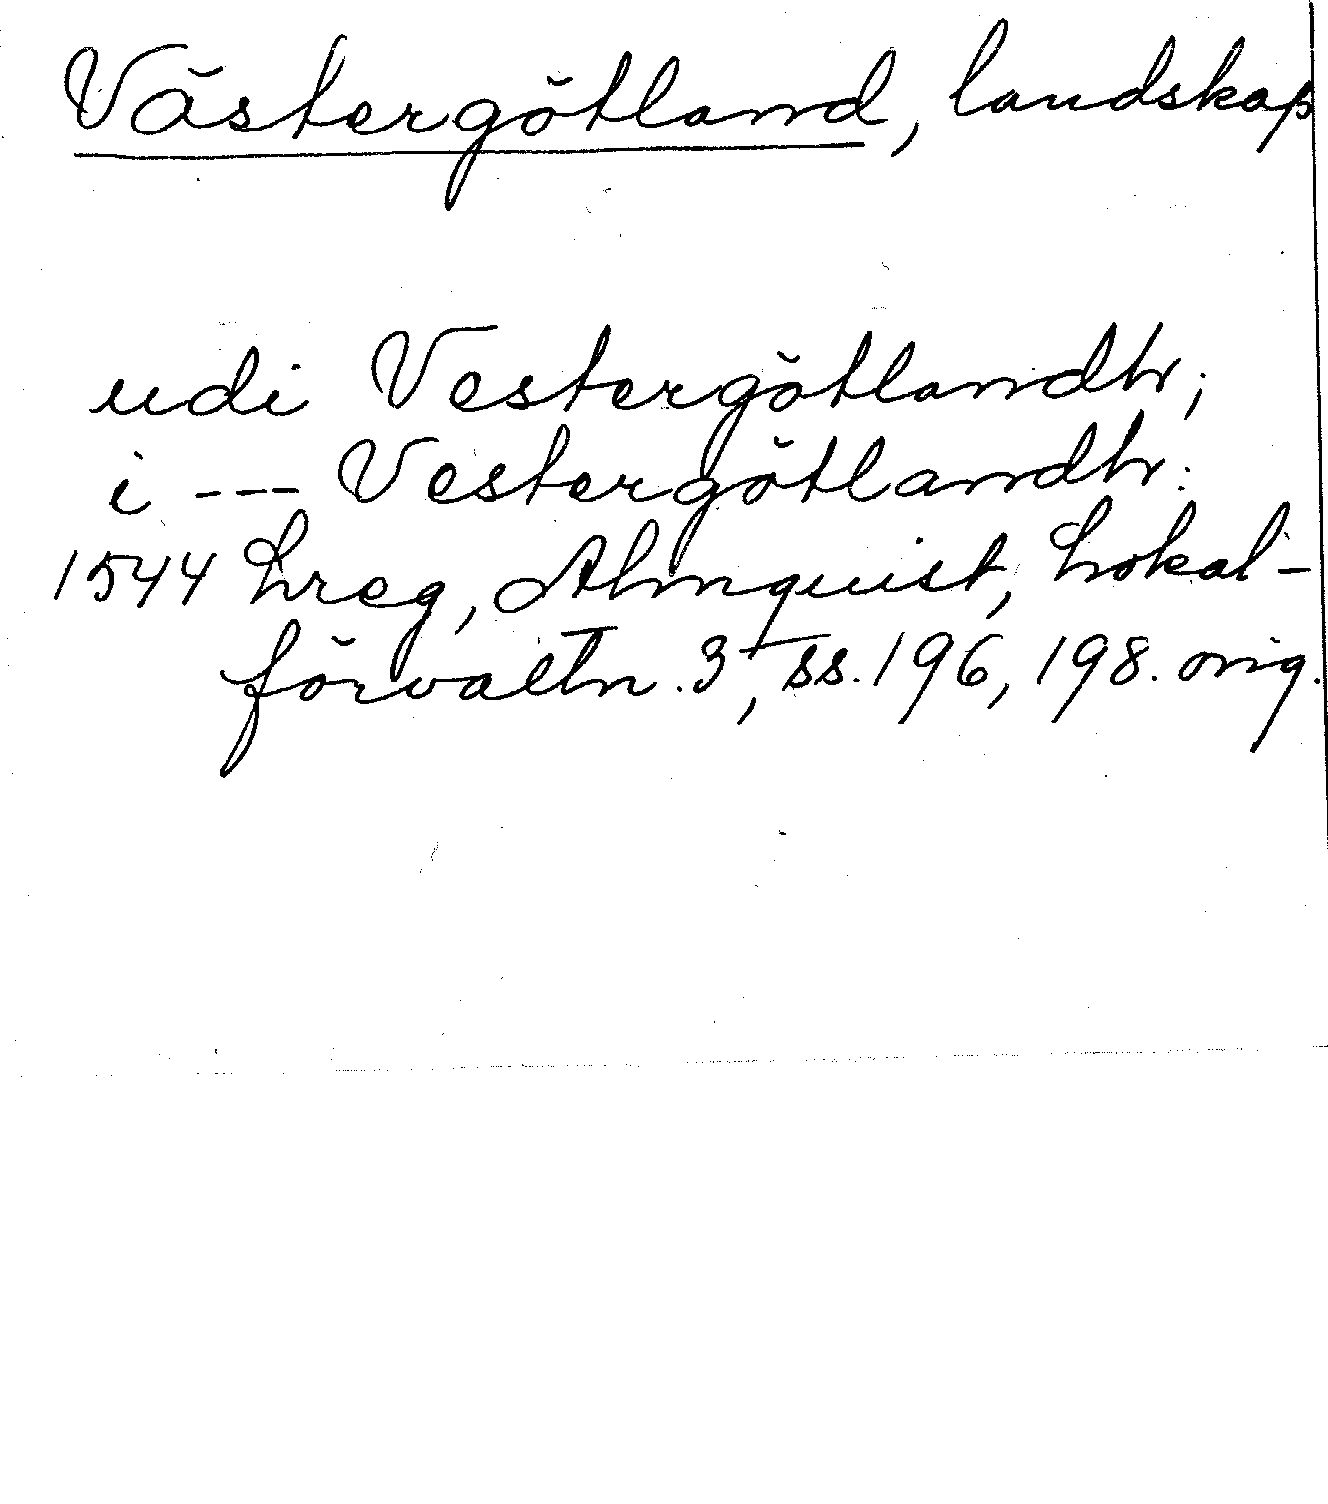 Västergötland, landskap
udi Vestergötlandh;
i --- Vestergötlandh.
1544 Lreg, Almquist, Lokal-
förvaltn. 3, ss. 196, 198. orig.